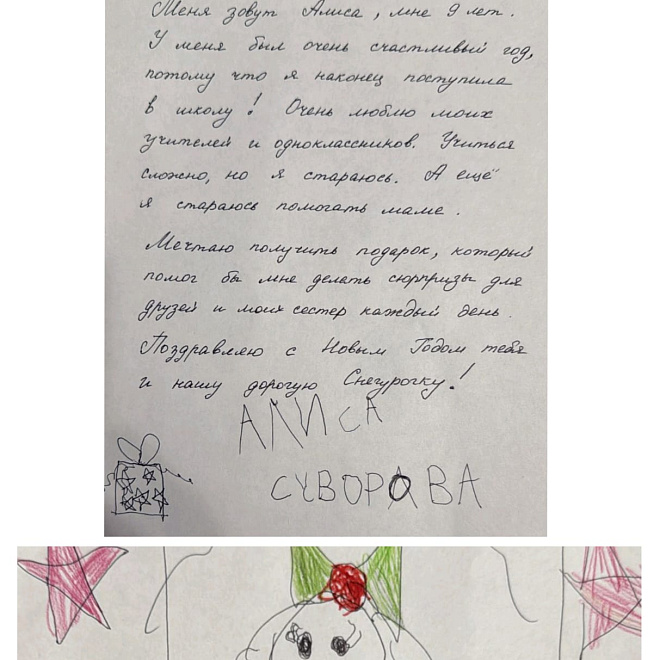 Меня зовут Алиса, мне 9 лет.
У меня был очень счастливый год,
потому что я наконец поступила
в школу! Очень люблю моих
учителей и одноклассников. Учиться
сложно, но я стараюсь. А ещё
я стараюсь помогать маме.
Мечтаю получить подарок, который
помог бы мне делать сюрпризы для
друзей и моих сестер каждый день.
Поздравляю с Новым Годом тебя
и нашу дорогую Снегурочку!
АЛИСА
СУВОРОВА